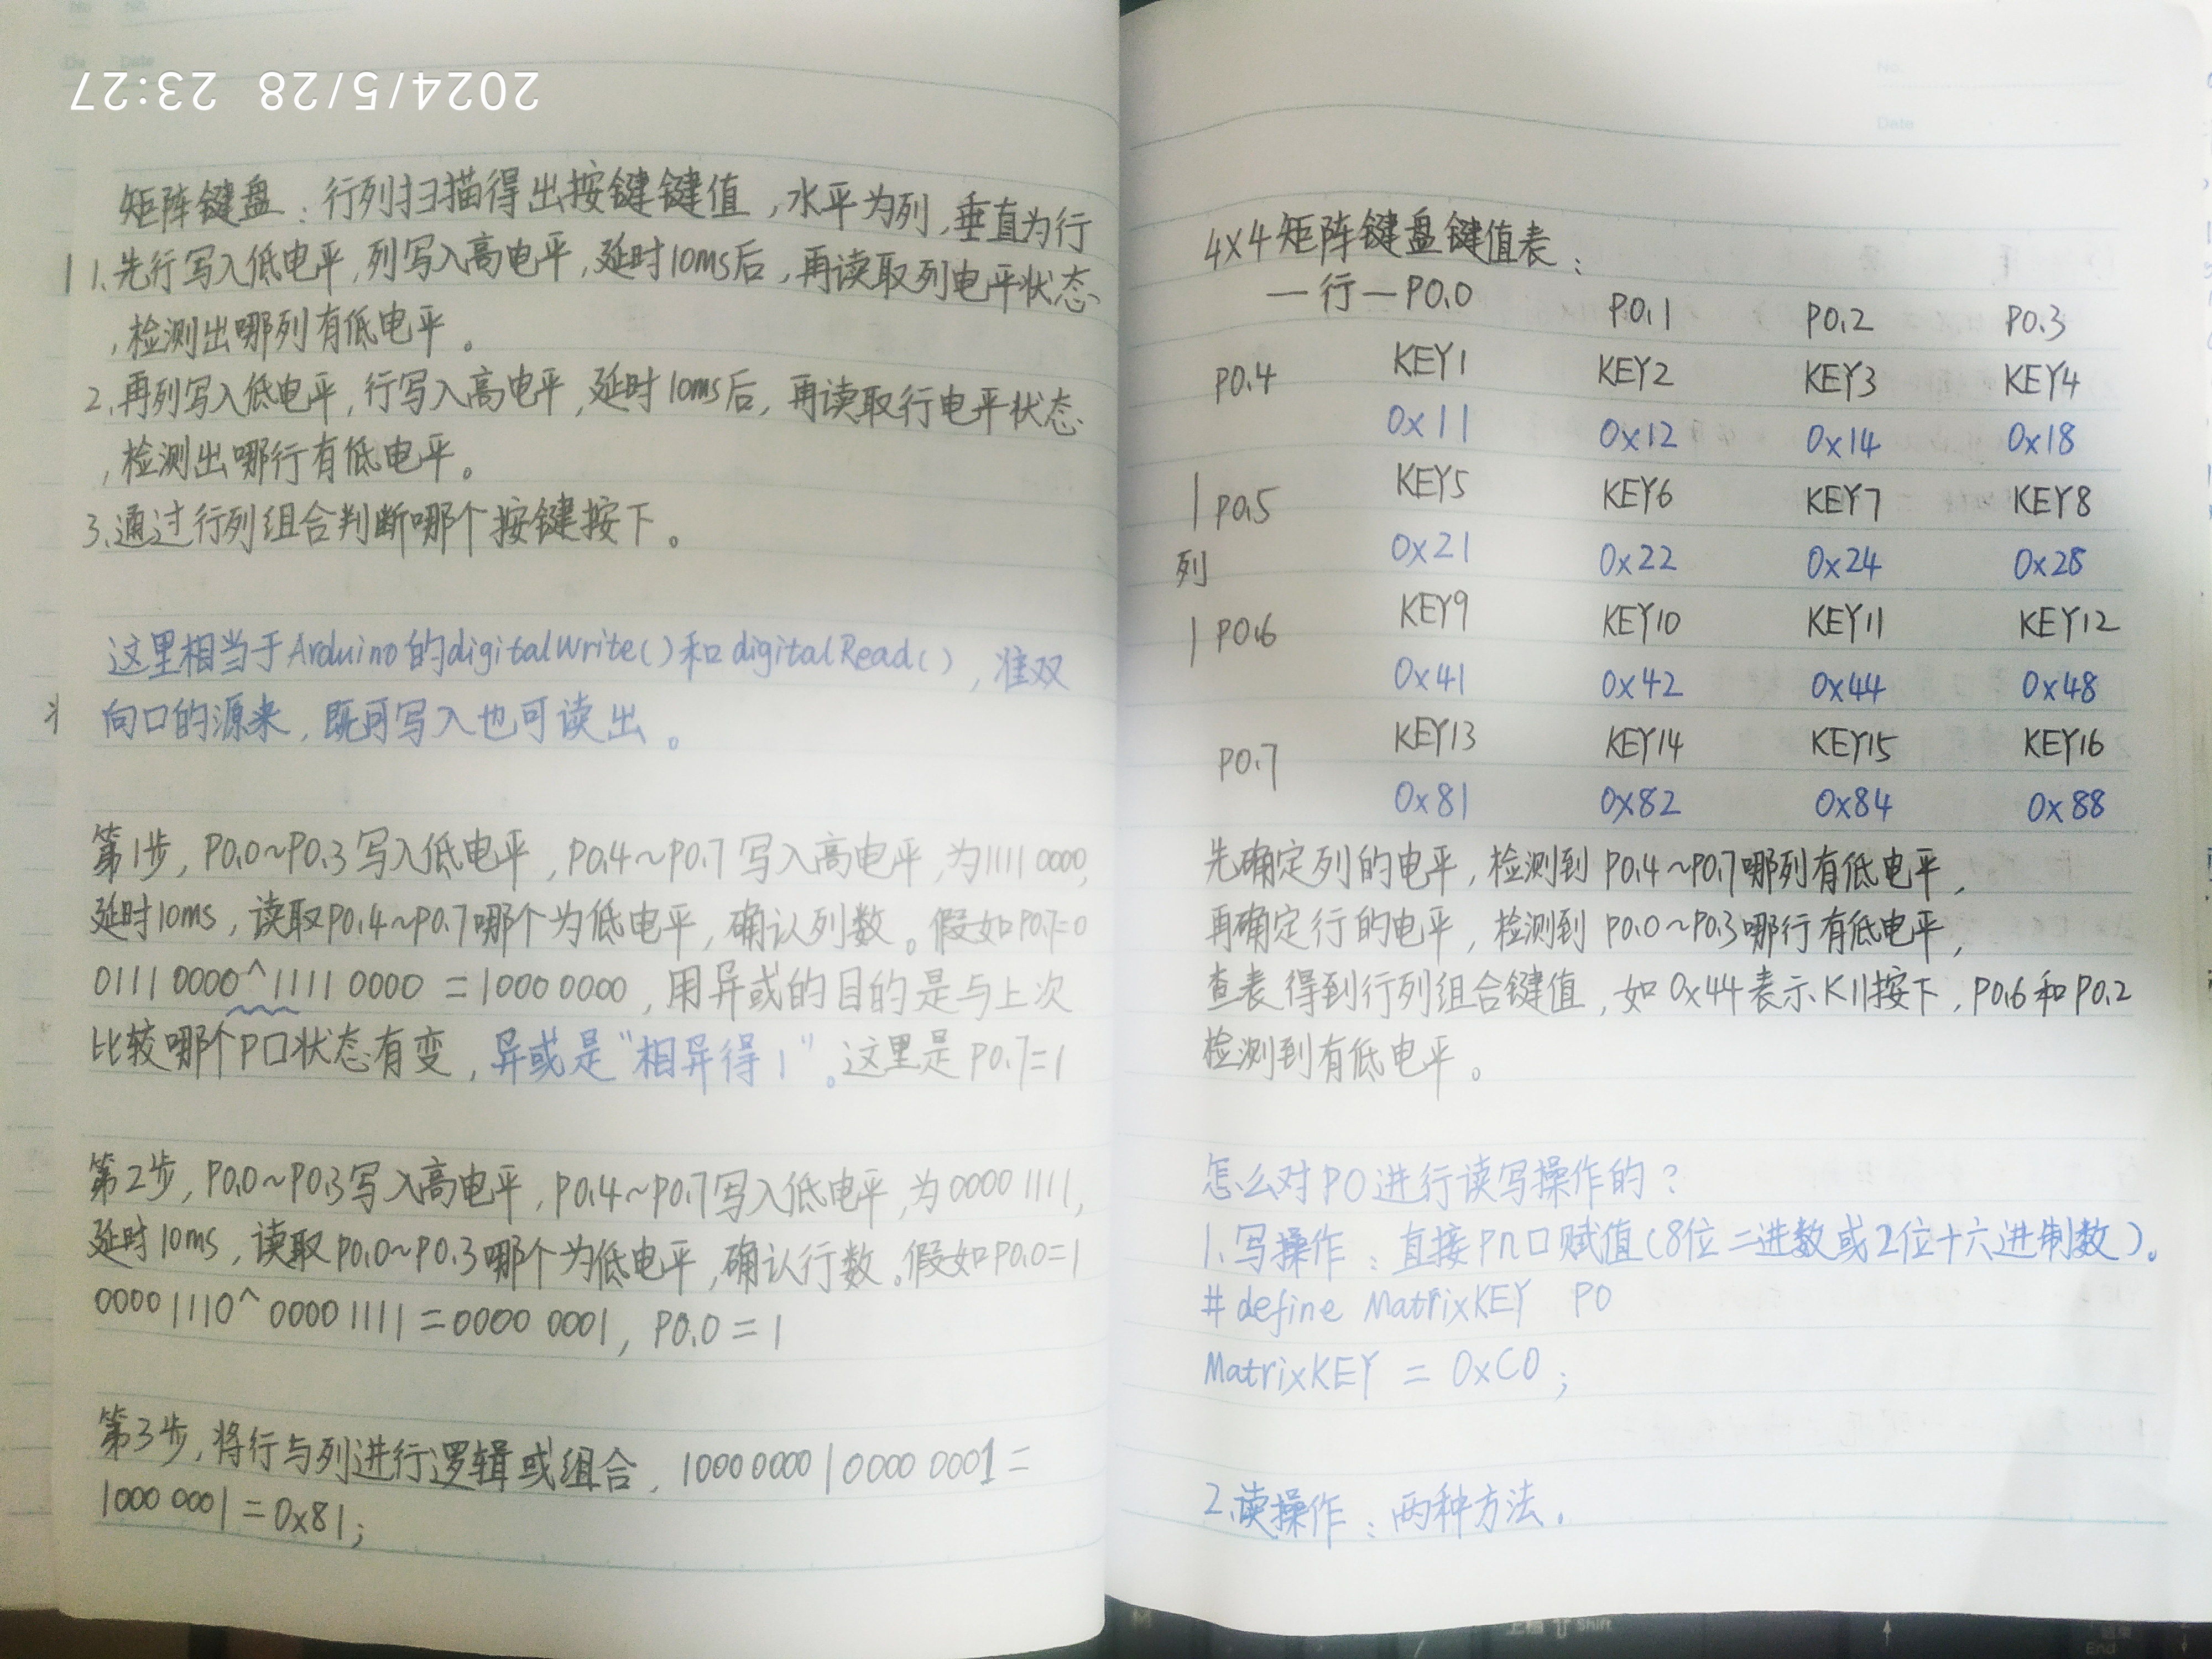 矩阵键盘：行列扫描得出按键键值，水平为列，垂直为行
1.先行写入低电平，列写入高电平，延时10ms后，再读取列电平状态
，检测出哪列有低电平。
2.再列写入低电平，行写入高电平，延时10ms后，再读取行电平状态
，检测出哪行有低电平。
3.通过行列组合判断哪个按键按下。
这里相当于Arduino的digitalWrite()和digitalRead()，准双
向口的源来，既可写入也可读出。
第1步，P0.0~P0.3写入低电平，P0.4~P0.7写入高电平，为1111 0000，
延时10ms，读取P0.4~P0.7哪个为低电平，确认列数。假如P0.7=0
0111 0000^1111 0000 = 1000 0000，用异或的目的是与上次
比较哪个P口状态有变，异或是"相异得1"。这里是P0.7=1
第2步，P0.0~P0.3写入高电平，P0.4~P0.7写入低电平，为0000 1111，
延时10ms，读取P0.0~P0.3哪个为低电平，确认行数。假如P0.0=1
0000 1110^0000 1111 = 0000 0001，P0.0=1
第3步，将行与列进行逻辑或组合，1000 0000|0000 0001 =
1000 0001 = 0x81;
4X4矩阵键盘键值表：
—行—P0.0 P0.1 P0.2 P0.3
P0.4 KEY1 KEY2 KEY3 KEY4
0x11 0x12 0x14 0x18
P0.5 KEY5 KEY6 KEY7 KEY8
列 0x21 0x22 0x24 0x28
P0.6 KEY9 KEY10 KEY11 KEY12
0x41 0x42 0x44 0x48
P0.7 KEY13 KEY14 KEY15 KEY16
0x81 0x82 0x84 0x88
先确定列的电平，检测到P0.4~P0.7哪列有低电平，
再确定行的电平，检测到P0.0~P0.3哪行有低电平，
查表得到行列组合键值，如0x44表示K11按下，P0.6和P0.2
检测到有低电平。
怎么对P0进行读写操作的？
1.写操作：直接Pn口赋值(8位二进数或2位十六进制数)。
#define MatrixKEY P0
MatrixKEY = 0xC0;
2.读操作：两种方法。
2024/5/28 23:27